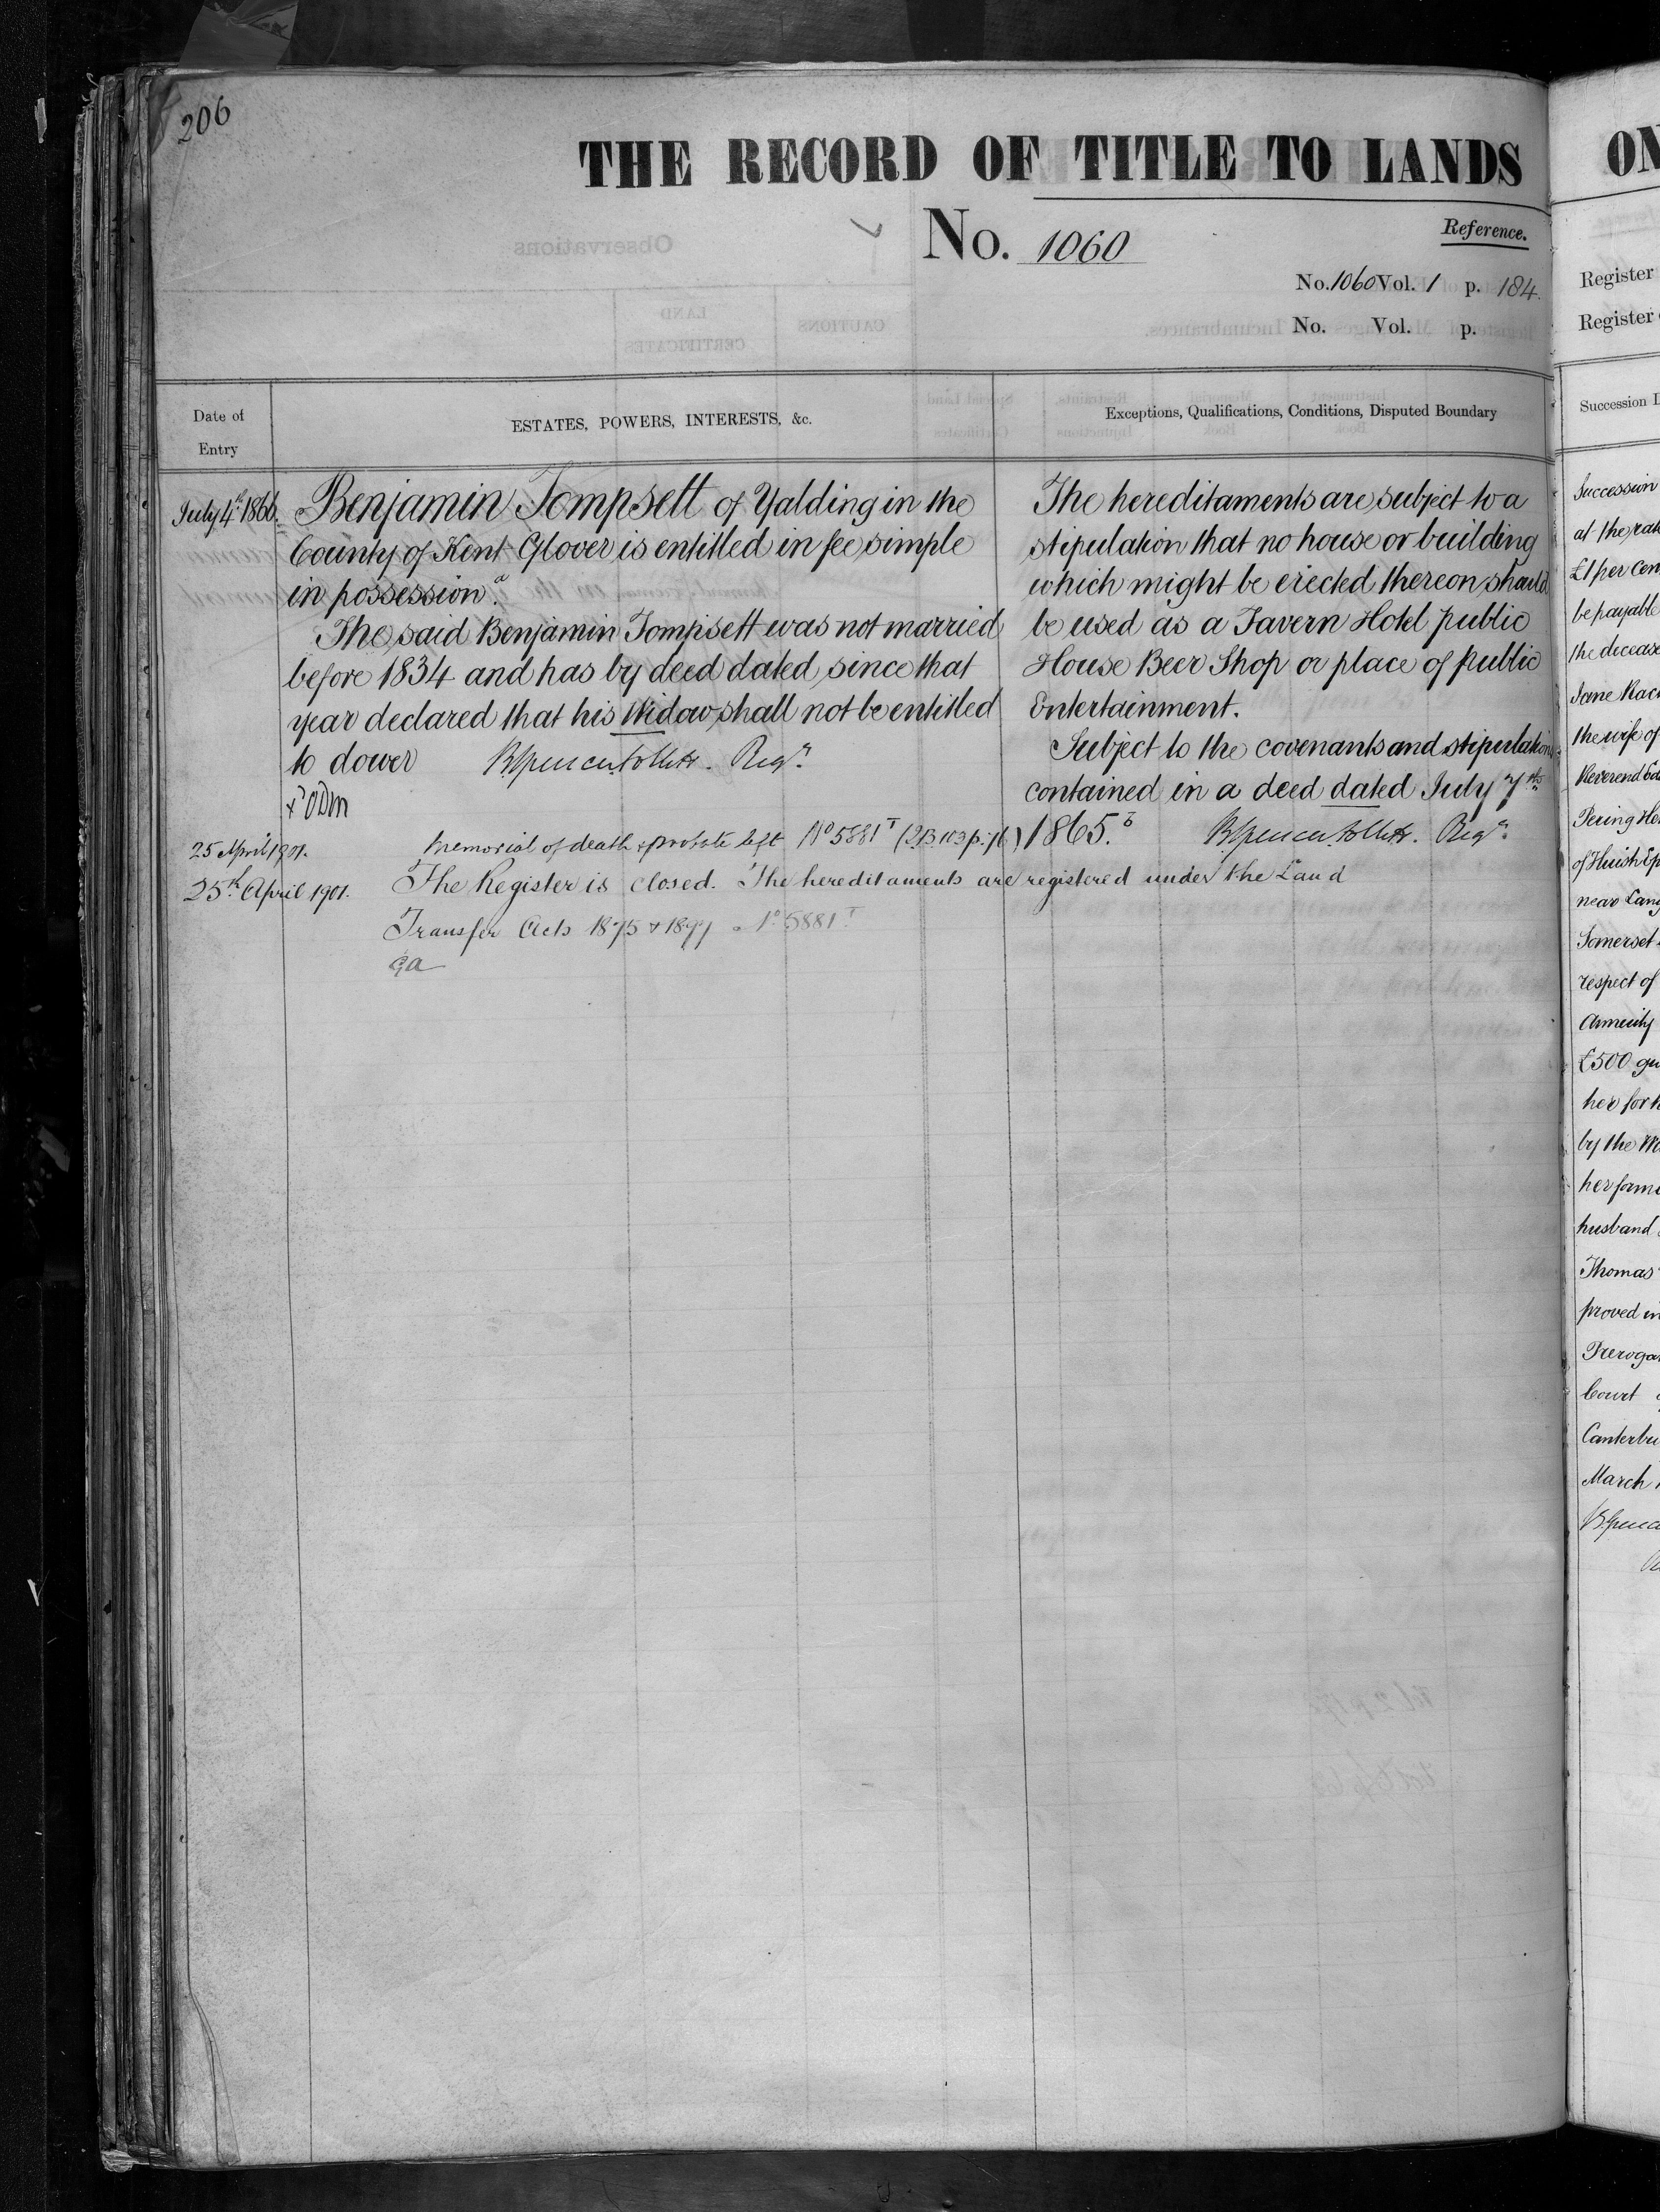 206
THE RECORD OF TITLE TO LANDS
No. 1060
Reference.
No. 1060 Vol. 1 p. 184.
No. Vol. p.
Date of
Entry
ESTATES, POWERS, INTERESTS, &c.
Exceptions, Qualifications, Conditions, Disputed Boundary
July 4th 1866.
Benjamin Tompsett of Yalding in the
County of Kent Glover is entitled in fee simple
in possession. a
The said Benjamin Tompsett was not married
before 1834 and has by deed dated since that
year declared that his Widow shall not be entitled
to dower Regr.
The hereditaments are subject to a
stipulation that no house or building
which might be erected thereon should
be used as a Tavern Hotel public
House Beer Shop or place of public
Entertainment.
Subject to the covenants and stipulations
contained in a deed dated July 7th
1865. b Regr.
25 April 1901. Memorial of death & probate left No 5881 T
25th April 1901. The Register is closed. The hereditaments are registered under the Land
Transfer Acts 1875 & 1897 No 5881 T
GA
ON
Register
Register
Succession
Succession
at the rate
£1 per Cen
be payable
the decease
Jane Rac
the wife of
Reverend
Pering
of Huish Ep
near Lang
Somerset
respect of
Annuity
£500
her for
by the
her forme
husband
Thomas
proved in
Prerogat
Court
Canterbu
March